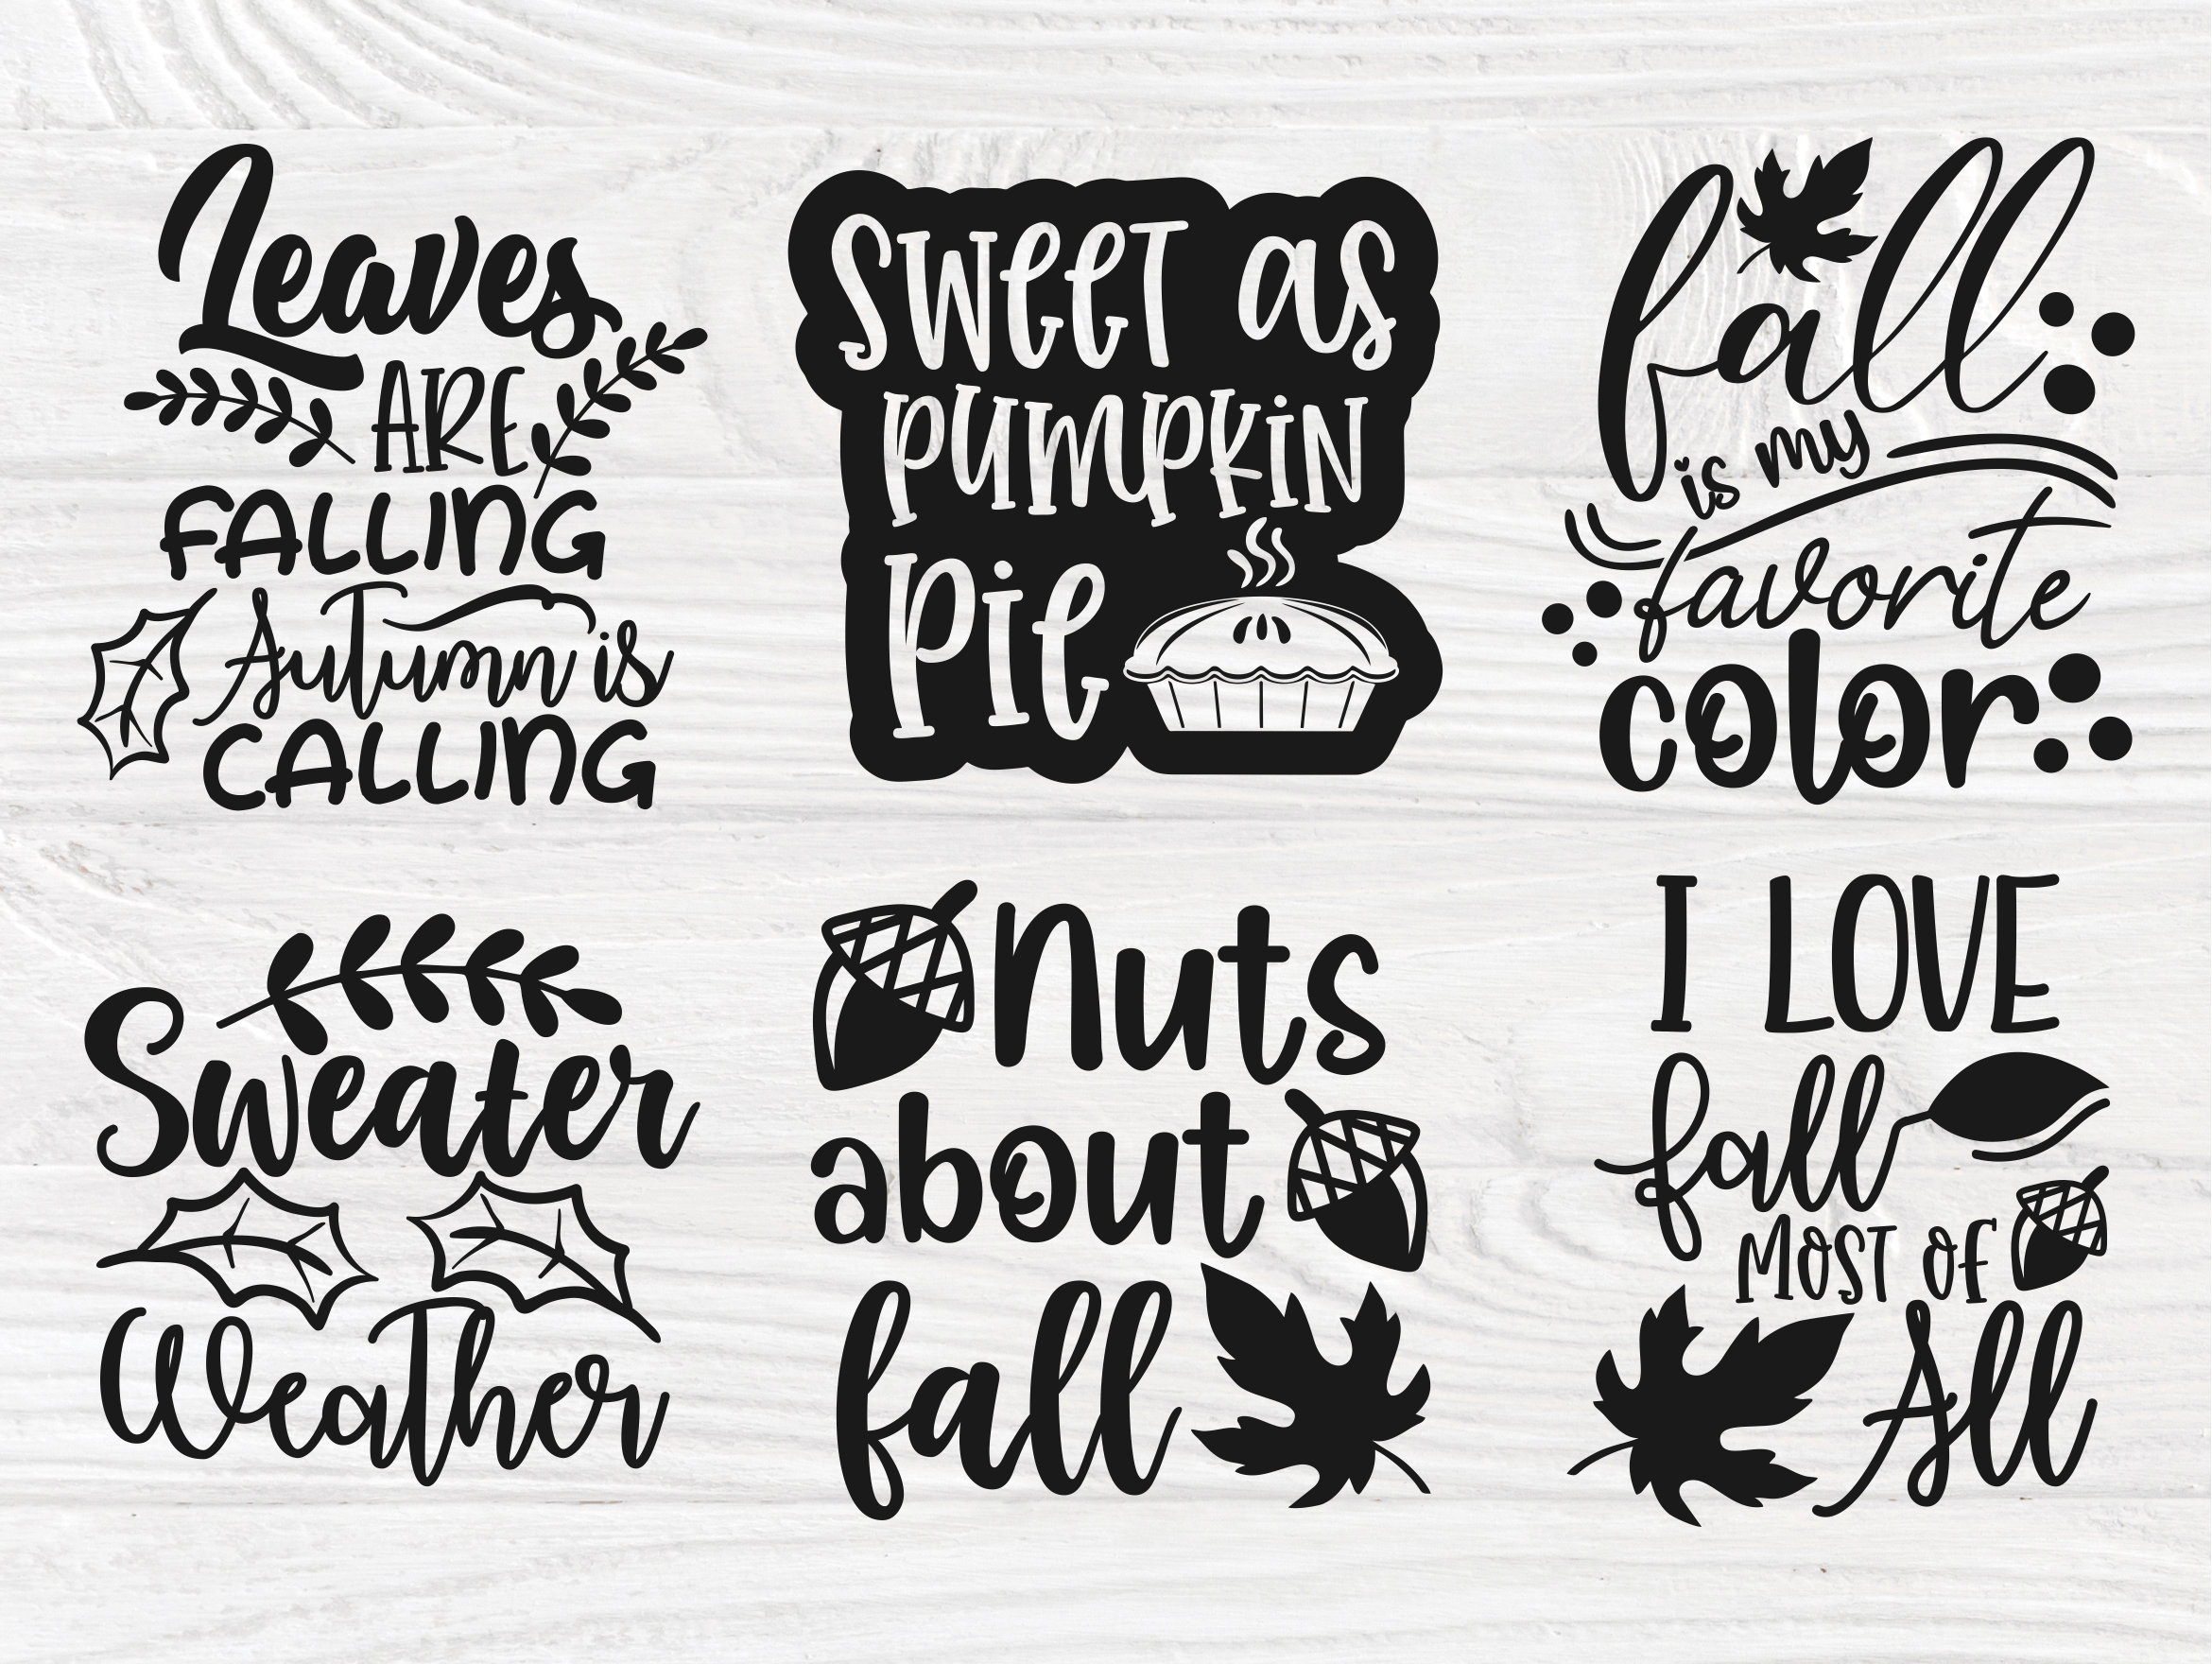 Leaves
ARE
FALLING
Autumn is
CALLING
Sweet as
pumpkin
Pie
fall
is my
favorite
color
Sweater
Weather
Nuts
about
fall
I LOVE
fall
MOST OF
All